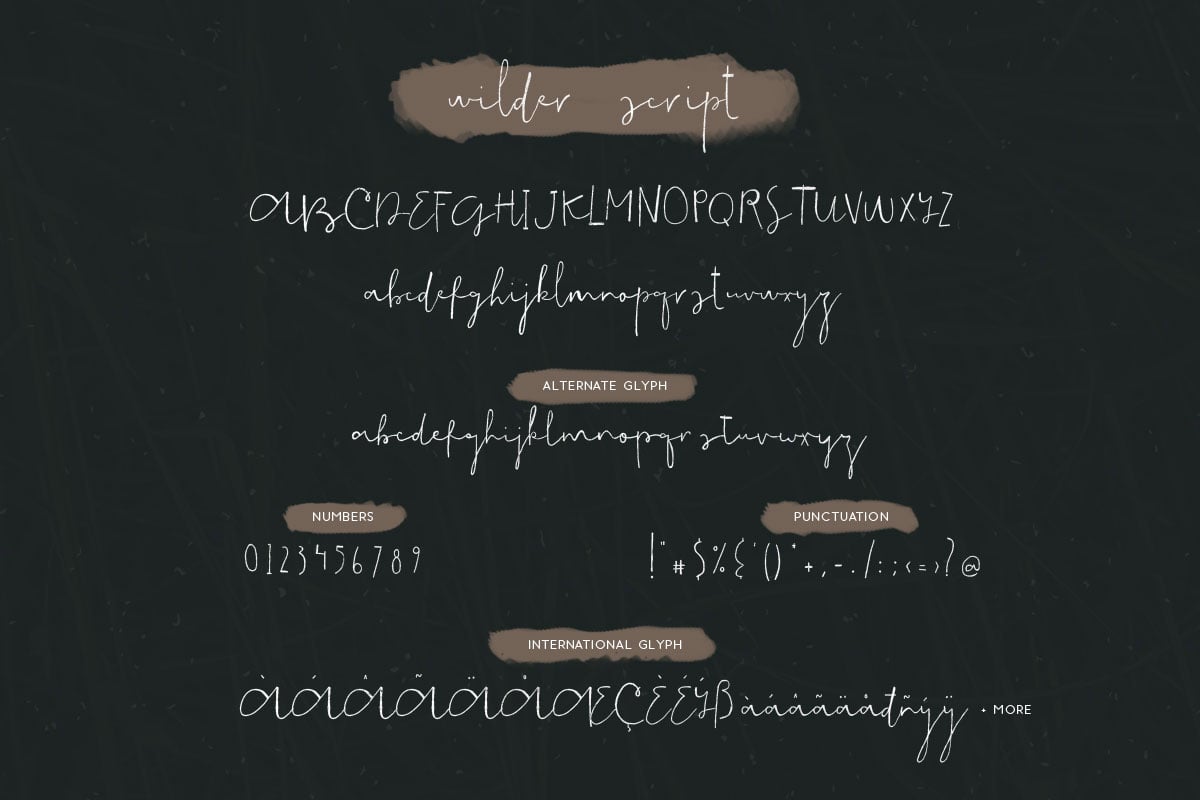 wilder script
ABCDEFGHIJKLMNOPQRSTUVWXYZ
abcdefghijklmnopqrstuvwxyz
ALTERNATE GLYPH
abcdefghijklmnopqrstuvwxyz
NUMBERS
0123456789
PUNCTUATION
!"#$%&'()*+,-./:;<=>?@
INTERNATIONAL GLYPH
ÀÁÂÃÄÅÆÇÈÉÝßàáâãäåđñýÿ + MORE